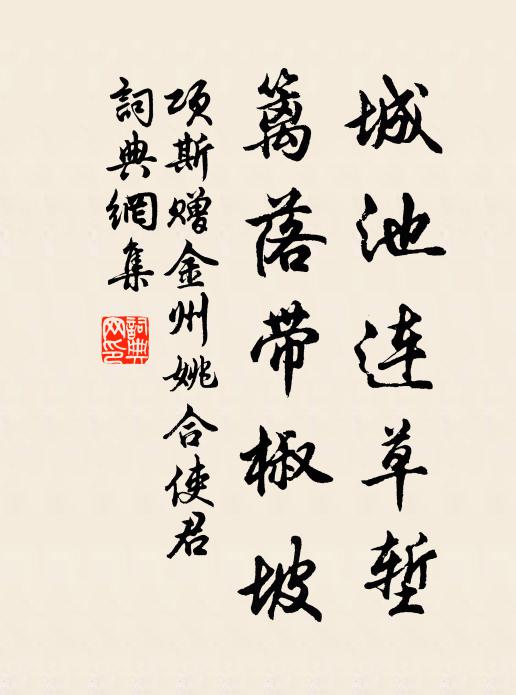 城池连草堑
篱落带椒坡
项斯赠金州姚合使君
詞典網集
詞典网印